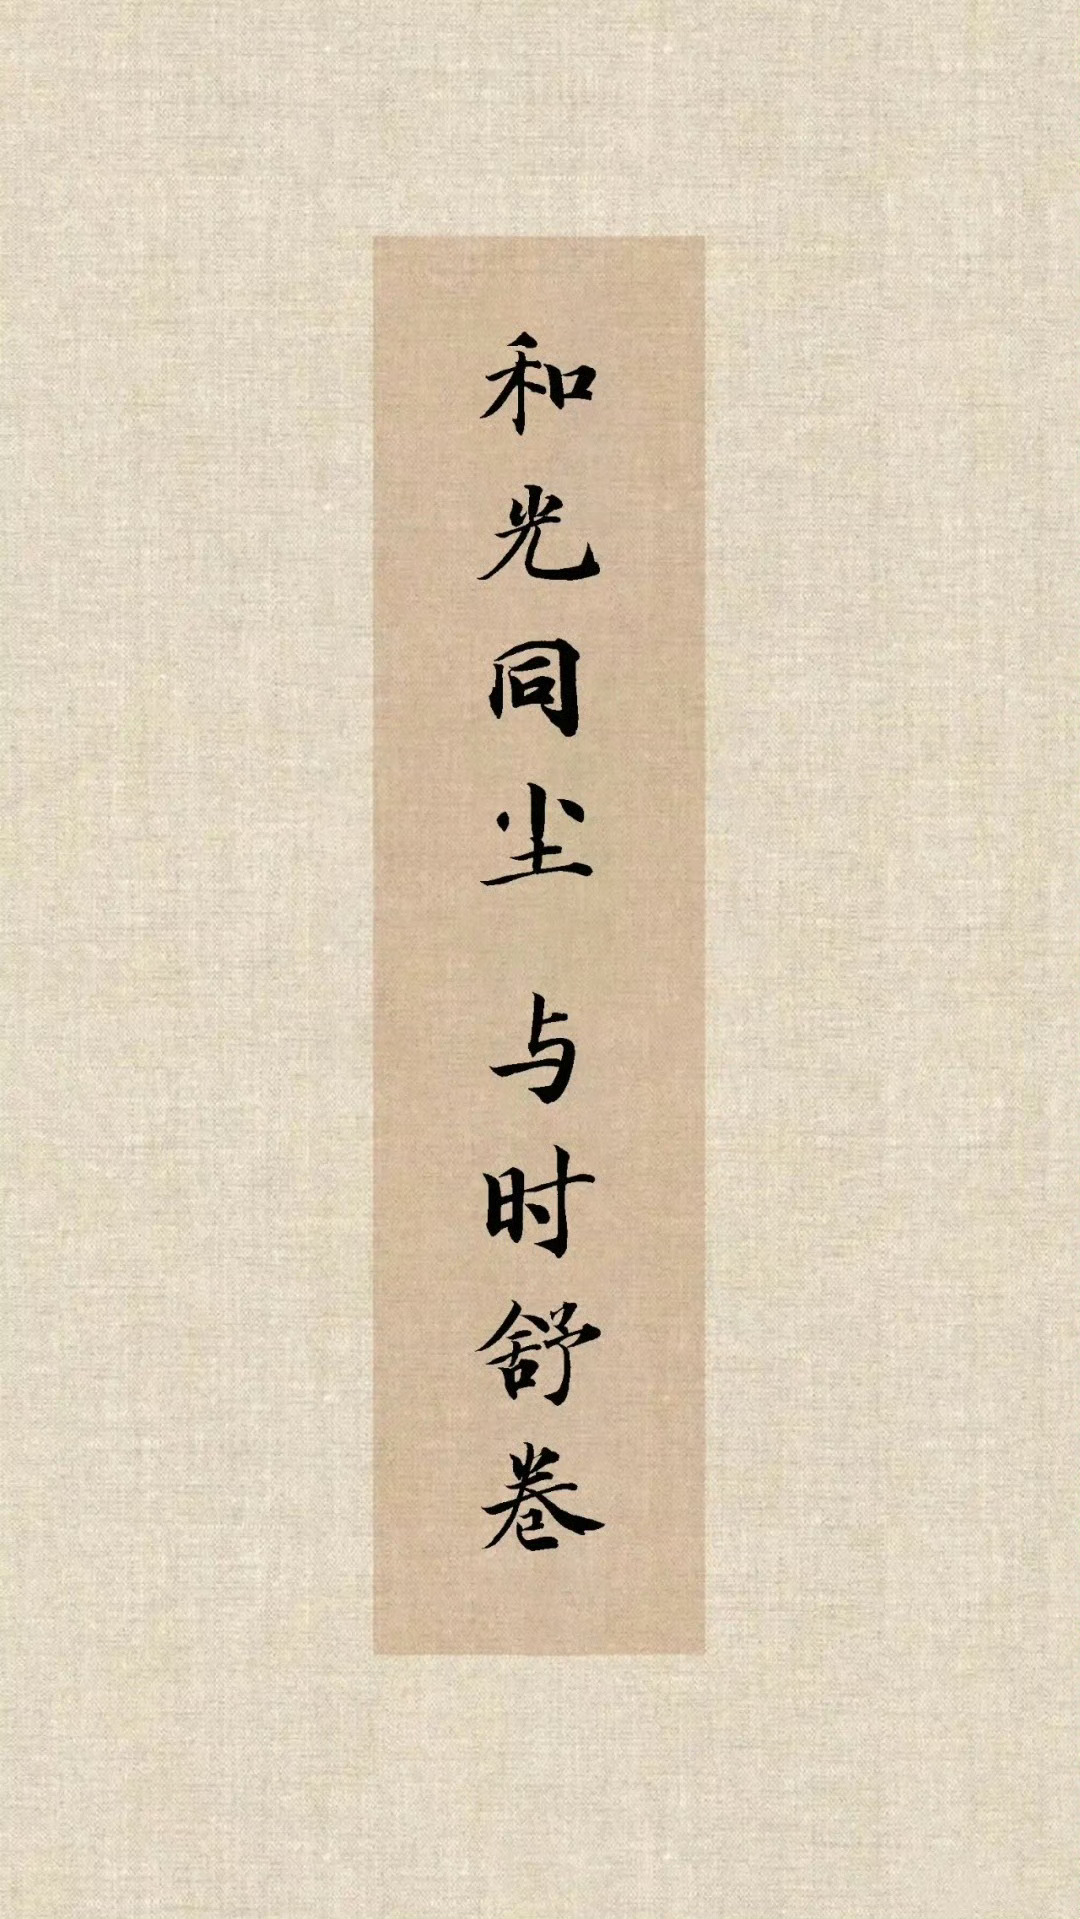 和光同尘 与时舒卷